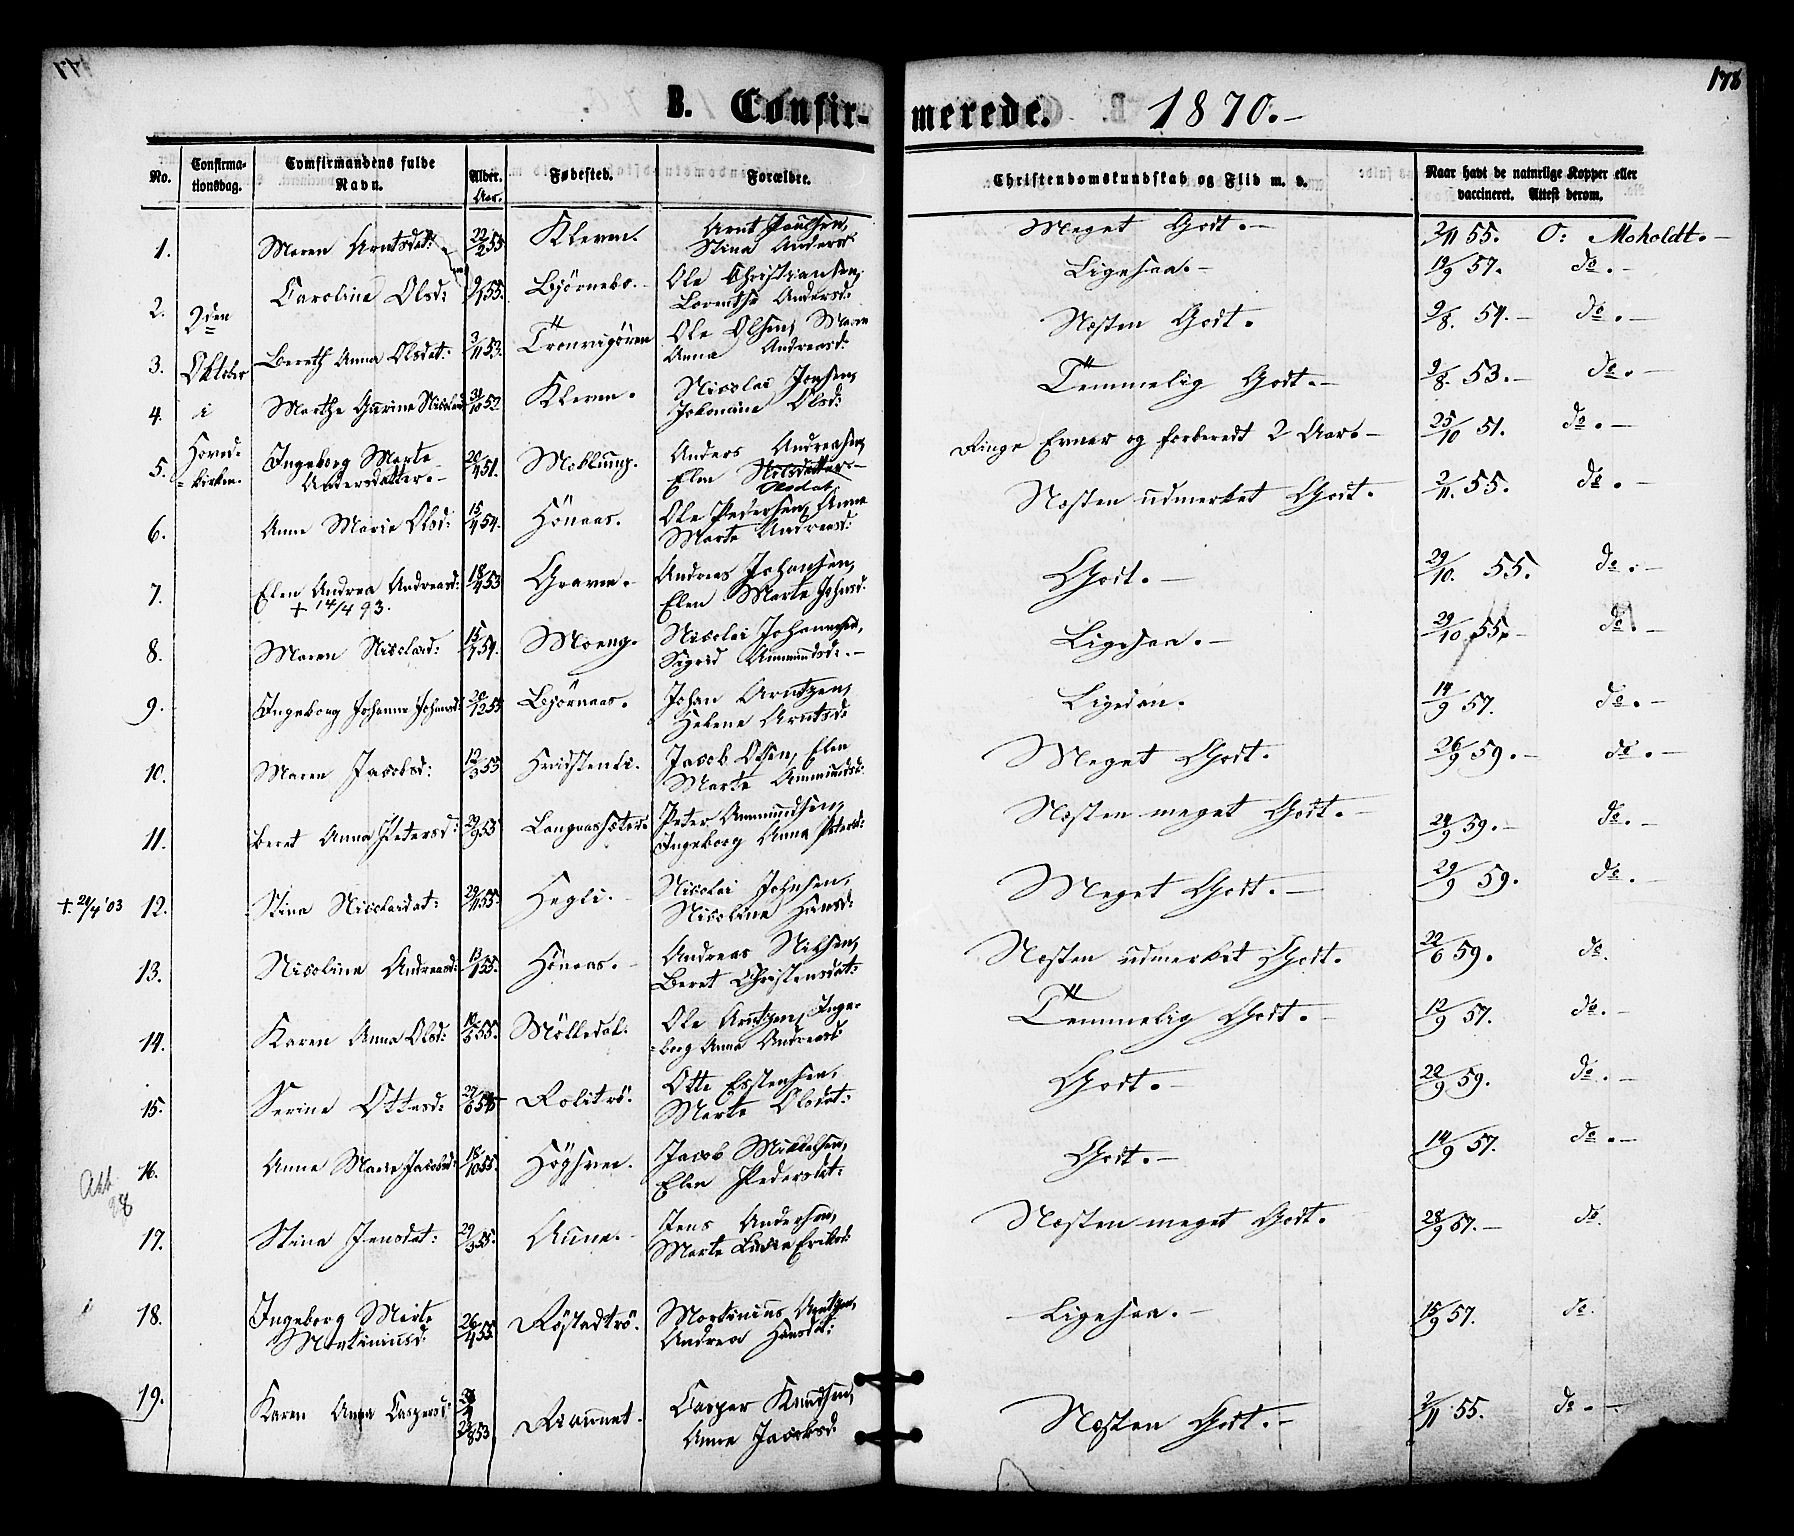 178
B. Confirmerede. 1870.-
No. Confirmationsdag. Comfirmandens fulde Navn. Alder. Aar. Fødested. Forældre. Christendomskundskab og Flid m. v. Naar havt de naturlige Kopper eller vaccineret. Attest derom.
2den Oktober i Hovedkirken.
1. Maren Arntsdat: 22/2 55 Kleven. Arnt Paulsen, Stina Andersd: Meget Godt.- 2/11 55. O: Moholdt.-
2. Caroline Olsd: 55. Bjørnebo. Ole Christiansen, Lorentse Andersd: Ligesaa.- 19/9 57. do.-
3. Bereth Anna Olsdat: 3/11 53. Tronvigøren Ole Olsen, Maren Anna Andreasd: Næsten Godt. 9/8. 54.- do.-
4. Marthe Gurine Nicolaid 52. Kleven. Nicolai Jonsen, Johanna Olsd: Temmelig Godt.- 9/8. 53.- do.-
5. Ingeborg Marte Andersdatter.- 20/4 51. Moklung. Anders Andreasen, Elen Ringe Evner og forberedt 2 Aar.- 25/10 51. do.-
6. Anne Marie Olsd: 15/4 54. Hönaas. Ole Pedersen, Anne Marte Andreasd: Næsten udmerket Godt. 2/11. 55. do.-
7. Elen Andrea Andreasd: 18/4 53 Graven. Andreas Johansen, Elen Marte Johnsd: Godt.- 29/10. 55. do.-
+ 14/4 93.
8. Maren Nicolaid: 15/7 54. Moeng. Nicolai Johannesen, Sigrid Ammundsd:- Ligesaa.- 29/10 55.- do.-
9. Ingeborg Johanna Johansd: 20/12 55 Bjørnaas. Johan Arntzen, Helene Arntsd: Ligedan. 14/9 57. do.-
10. Maren Jacobsd: 12/3 53 Hvidstenli. Jacob Olsen, Elen Marte Ammundsd: Meget Godt. 26/9 59.- do.-
11. Beret Anna Petersd: 29/9 53 Langaassæter. Peter Ammundsen, Ingeborg Anna Petersd: Næsten meget Godt.- 24/9 59.- do.-
+. 24/4 '03 12. Stina Nicolaidat: 29/11 55. Hegli. Nicolai Johnsen, Nicoline Hansd: Meget Godt.- 29/9 59. do.-
13. Nicoline Andreasd: 13/1 55. Hönaas. Andreas Nilsen, Beret Christensdat: Næsten udmerket Godt. 22/6 59. do.
14. Karen Anna Olsd: 55. Mölledal. Ole Arntzen, Ingeborg Anna Andreasd: Temmelig Godt.- 12/9 57. do.-
15. Serine Ottesd: Rolitrö. Otte Estensen, Marte Olsdat: Godt.- 22/9 59. do.-
16. Anne Marie Jacobsd: 18/10 55. Högsnes. Jacob Mikkelsen, Elen Pedersdat: Godt.- 14/9 57. do.-
Att. 28
17. Stina Jensdat: 29/3 55. Aune.- Jens Andersen, Marte Eriksd: Næsten meget Godt. 28/9 57.- do.
18. Ingeborg Marte Martiniusd: 26/4 55 Röstadtrö. Martinius Arntzen, Andrea Hansdat: Ligesaa.- 15/9 57. do.
19. Karen Anna Caspersd: 53 Risaunet. Casper Knudsen, Anne Jacobsd: Næsten Godt.- 2/11 55. do.-